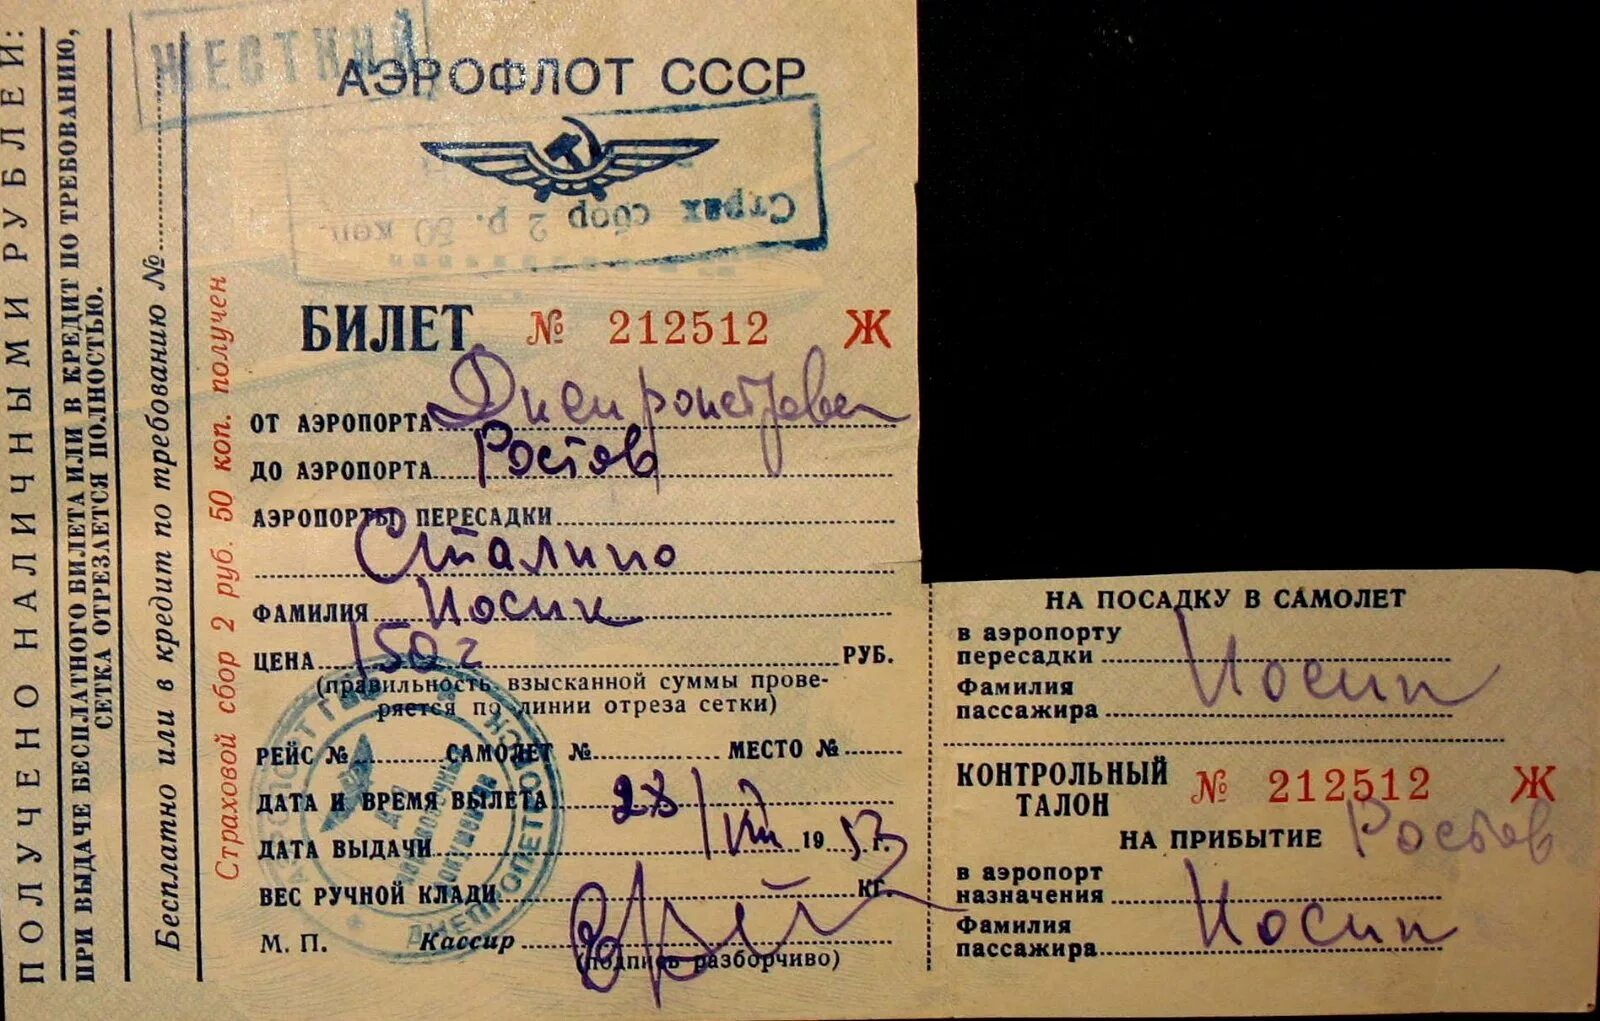 ПОЛУЧЕНО НАЛИЧНЫМИ РУБЛЕЙ:
ПРИ ВЫДАЧЕ БЕСПЛАТНОГО БИЛЕТА ИЛИ В КРЕДИТ ПО ТРЕБОВАНИЮ,
СЕТКА ОТРЕЗАЕТСЯ ПОЛНОСТЬЮ.
Бесплатно или в кредит по требованию №
Страховой сбор 2 руб. 50 коп. получен
ЖЕСТКИЙ
АЭРОФЛОТ СССР
Страх сбор 2 р. 50 коп.
БИЛЕТ № 212512 Ж
ОТ АЭРОПОРТА Днепропетровск
ДО АЭРОПОРТА Ростов
АЭРОПОРТЫ ПЕРЕСАДКИ
Сталино
ФАМИЛИЯ Носик
ЦЕНА 150 РУБ.
(правильность взысканной суммы прове-
ряется по линии отреза сетки)
РЕЙС № САМОЛЕТ № МЕСТО №
ДАТА И ВРЕМЯ ВЫЛЕТА 28/VIII
ДАТА ВЫДАЧИ 1953 г.
ВЕС РУЧНОЙ КЛАДИ КГ.
М. П. Кассир
(подпись разборчиво)
ДНЕПРОПЕТРОВСК
НА ПОСАДКУ В САМОЛЕТ
в аэропорту
пересадки
Фамилия
пассажира Носик
КОНТРОЛЬНЫЙ
ТАЛОН № 212512 Ж
НА ПРИБЫТИЕ Ростов
в аэропорт
назначения
Фамилия
пассажира Носик